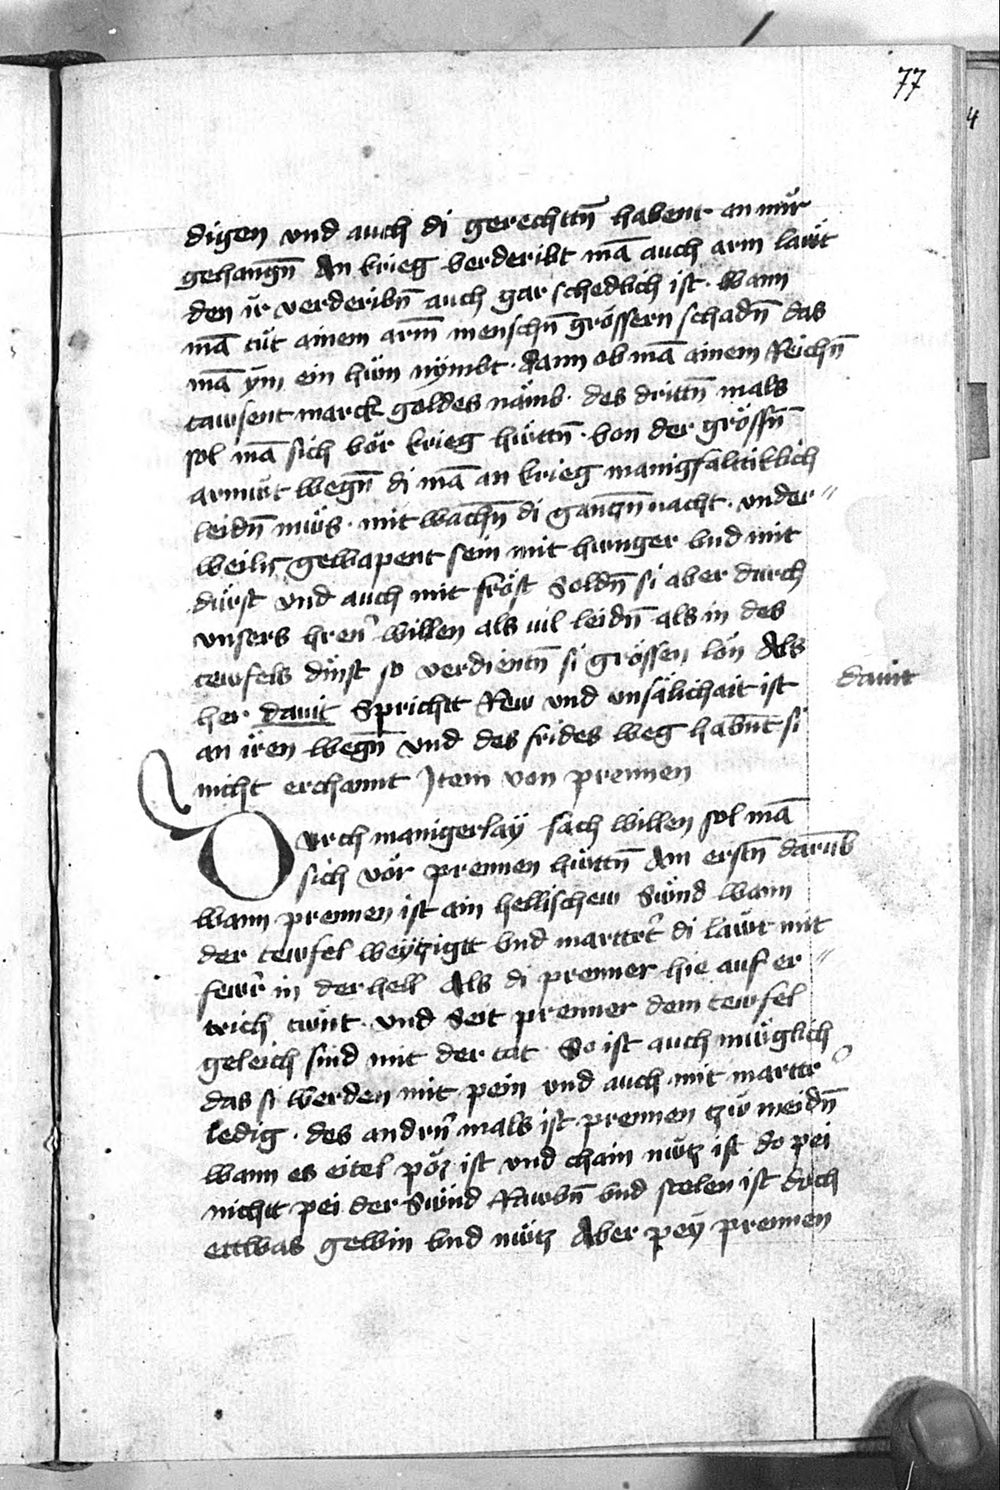 77
4
digen vnd auch di gerechttn̄ habent an mür
gehangn̄ An krieg verderibt mā auch arm lawt
den ir verderibn̄ auch gar schedlich ist · wann
mā tut ainem arm̄ menschn̄ grössern schadn̄ das
mā ym̄ ein hün nÿmbt · dann ob mā ainem Reichn̄
tawsent marck goldes näm̈b · des drittn̄ mals
sol mā sich vör krieg hüttn̄ · von der grössn̄
armüt wegn̄ di mā an krieg manigfalttiklich
leidn̄ müs · mit wachn̄ di gantzn̄ nacht · vnder〃
weilñ gewapent sein mit hunger vnd mit
dürst vnd auch mit fröst Soldn̄ si aber durch
vnsers hren̄ willen als vil leidn̄ als in des
tewfels dinst so verdientn̄ si grössen lön Als
her dauit Sprichtt Rew vnd vnsälichait ist
dauit
an iren wegn̄ vnd des frides weg habn̄t si
nicht erchannt Item von prennen
Durch manigerlaÿ sach willen sol mā
sich vör prennen hüttn̄ Am erstn̄ darūb
wann prennen ist ain hellischew Sünd wann
der tewfel weÿtzigtt vnd martt'et di lawt mit
fewr̄ in der hell Als di prenner hie auf er〃
trich tünt · vnd Seit prenner dem tewfel
geleich sind mit der tat So ist auch müglich
das si werden mit pein vnd auch mit martt'r
ledig · des andrn̄ mals ist prennen tzw meidn̄
wann es eitel pöz ist vnd chain nütz ist do pei
nichtt pei der Sünd Rawbn̄ vnd stelen ist doch
ettwas gewin vnd nütz Aber peÿ prennen